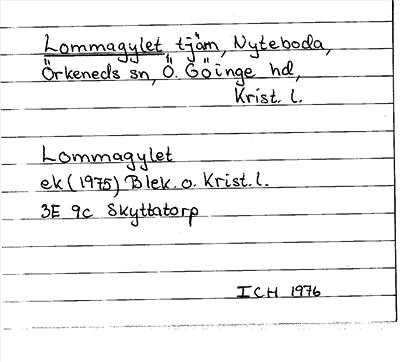 Lommagylet, tjärn, Nyteboda,
Örkeneds sn, Ö. Göinge hd,
Krist. l.
Lommagylet
ek (1975) Blek. o. Krist. l.
3E 9c Skyttatorp
ICH 1976